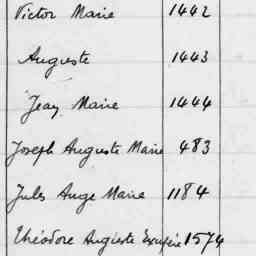 Victor Marie 1442
Auguste 1443
Jean Marie 1444
Joseph Auguste Marie 483
Jules Ange Marie 1184
Théodore Auguste Exupère 1574